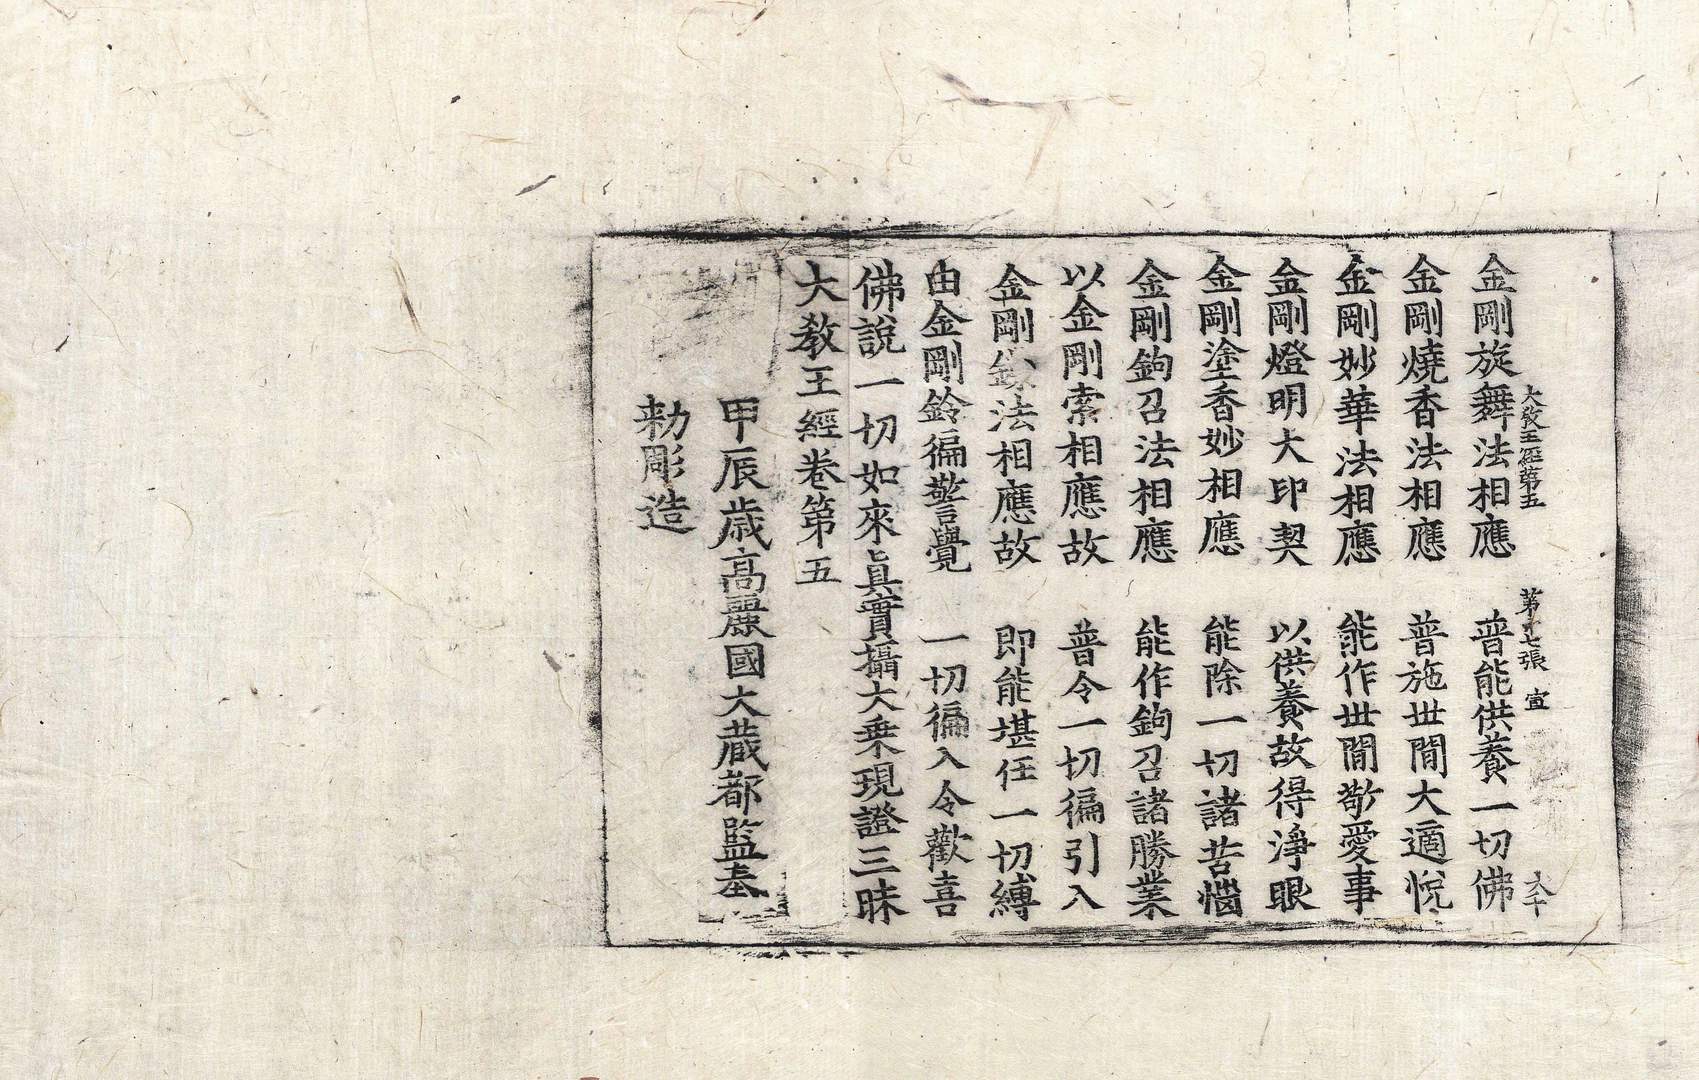 大敎王經第五　第十七張　宣
金剛旋舞法相應　普能供養一切佛
金剛燒香法相應　普施世閒大適悅
金剛妙華法相應　能作世閒敬愛事
金剛燈明大印契　以供養故得淨眼
金剛塗香妙相應　能除一切諸苦惱
金剛鉤召法相應　能作鉤召諸勝業
以金剛索相應故　普令一切徧引入
金剛鎖法相應故　即能堪任一切縛
由金剛鈴徧警覺　一切徧入令歡喜
佛說一切如來眞實攝大乗現證三昧
大敎王經卷第五
甲辰歲高麗國大藏都監奉
勅彫造